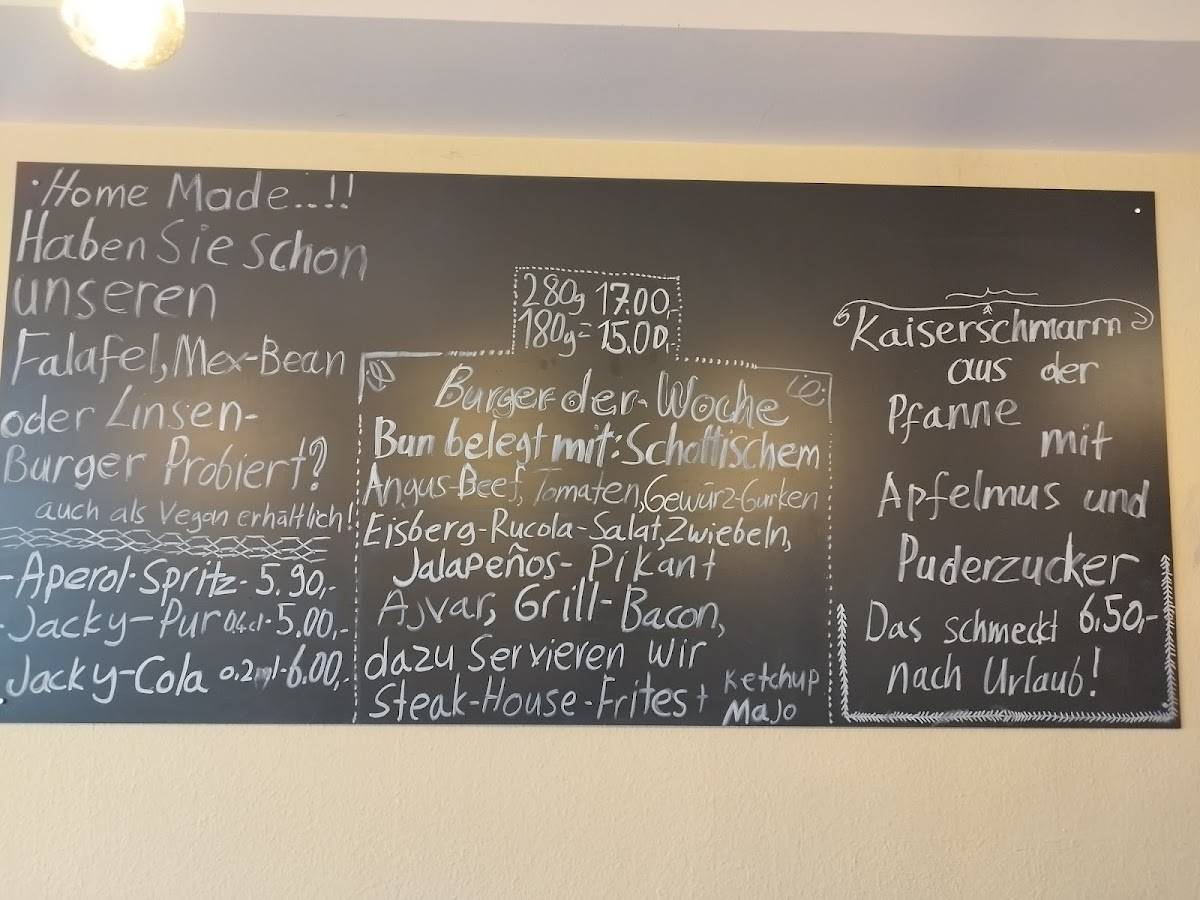 ·Home Made...!!
Haben Sie schon
unseren
Falafel, Mex-Bean
oder Linsen-
Burger Probiert?
auch als Vegan erhältlich!
-Aperol·Spritz- 5.90,-
-Jacky-Pur 0,4cl- 5.00,-
Jacky-Cola 0.2ml-6.00,-
280g 17.00,-
180g= 15.00,-
Burger-der-Woche
Bun belegt mit: Schottischem
Angus-Beef, Tomaten, Gewürz-Gurken
Eisberg-Rucola-Salat, Zwiebeln,
Jalapeños- Pikant
Ajvar, Grill-Bacon,
dazu Servieren wir
Steak-House-Frites + Ketchup
Majo
Kaiserschmarrn
aus der
Pfanne
mit
Apfelmus und
Puderzucker
6,50,-
Das schmeckt
nach Urlaub!